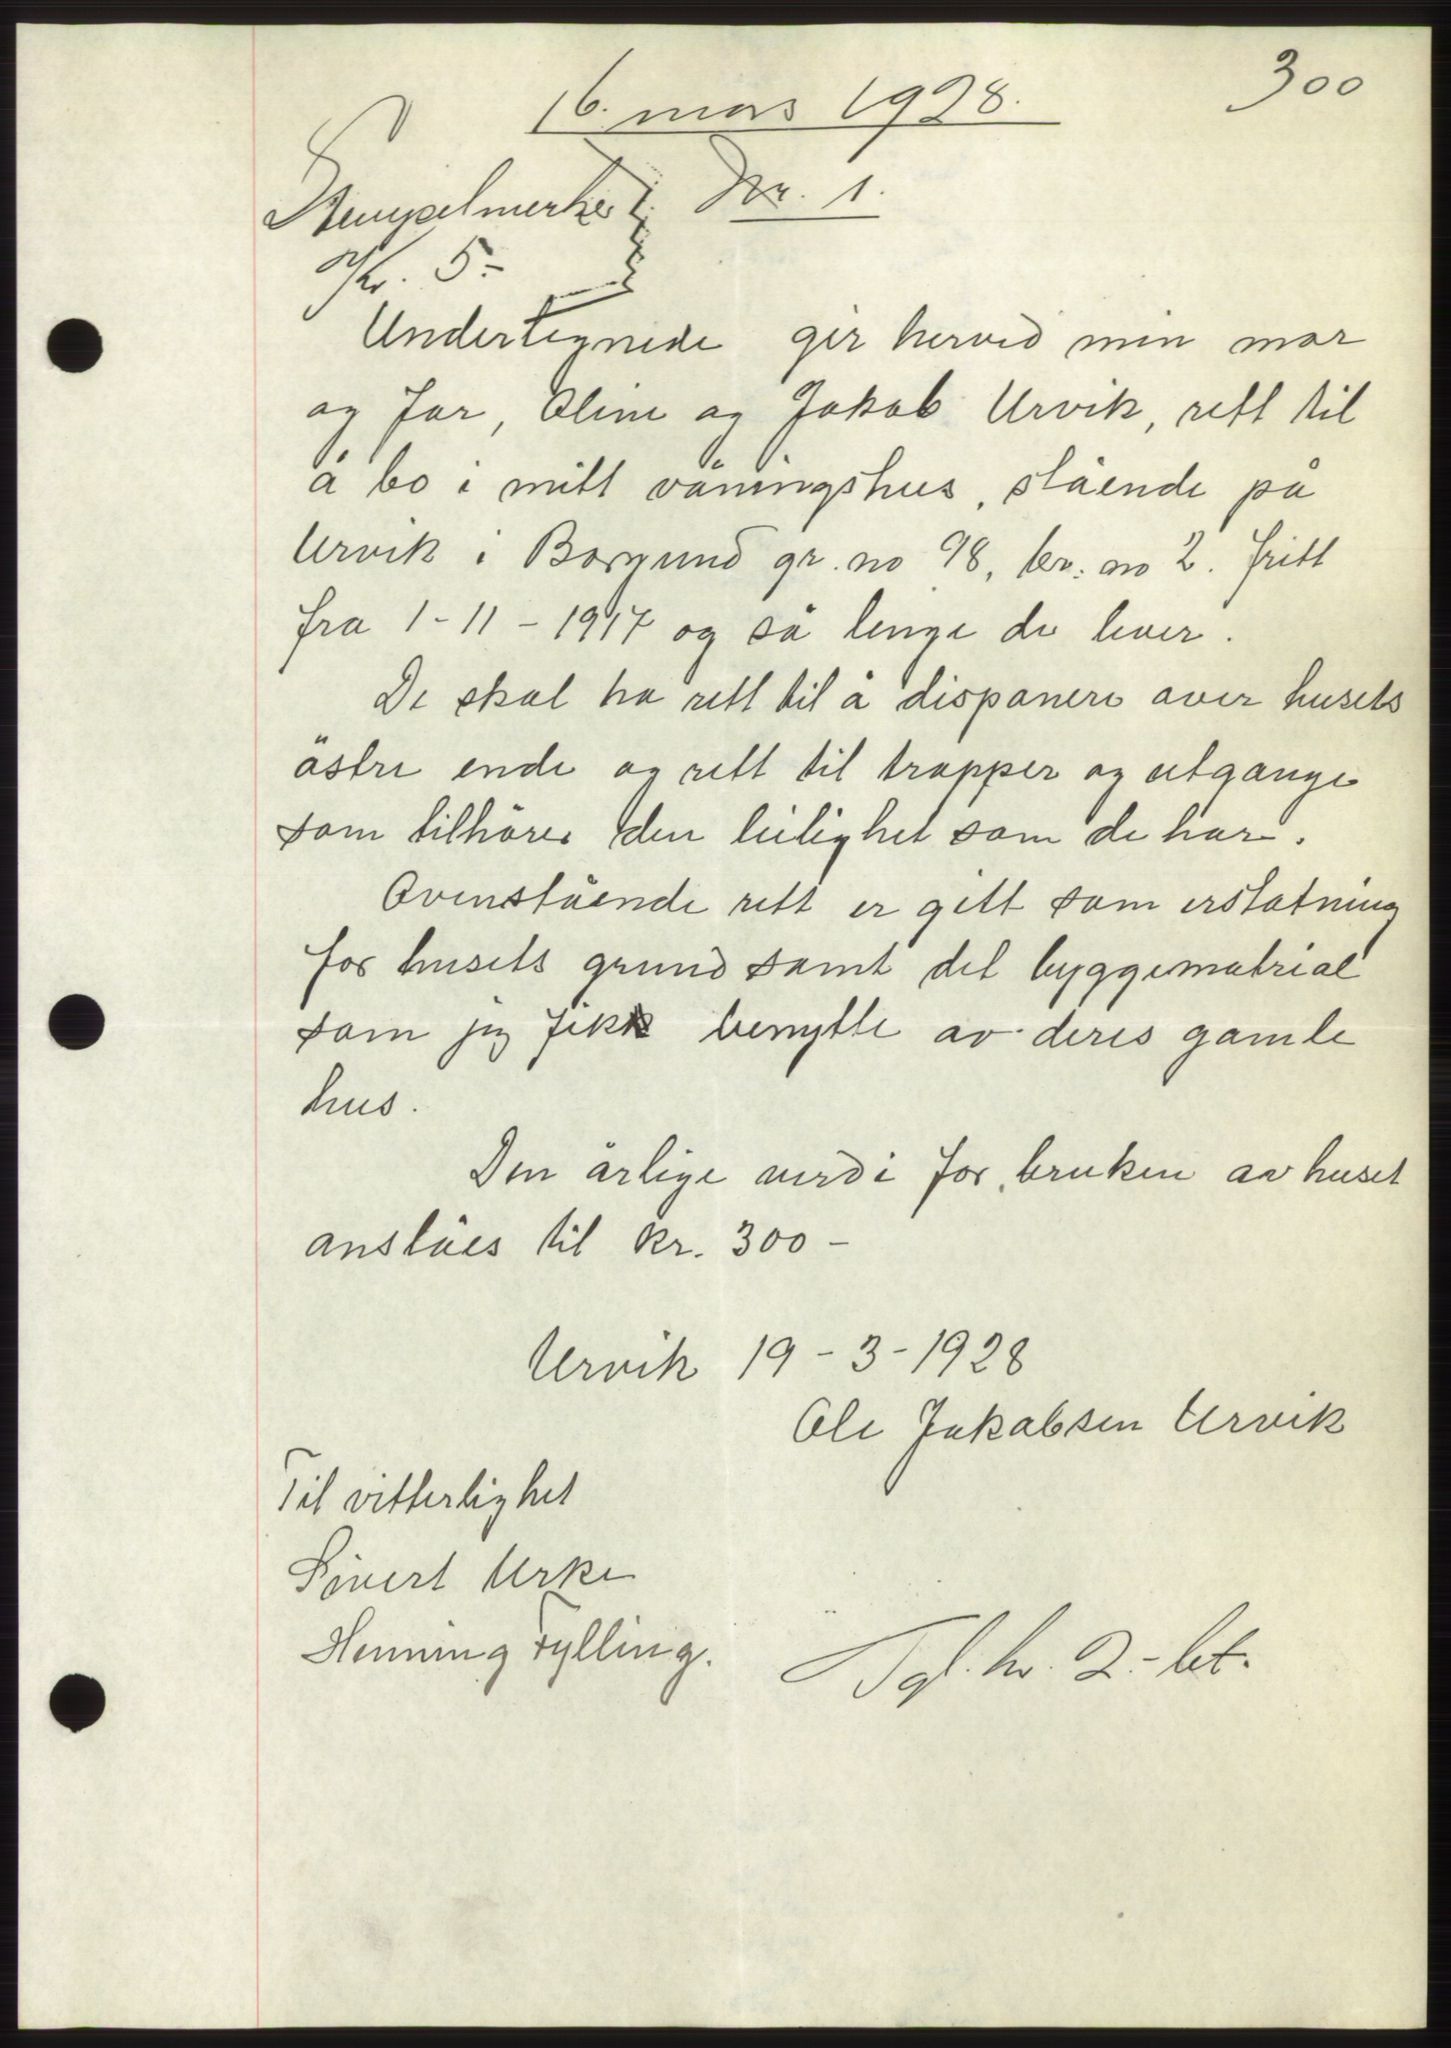 300
16. mars 1928.
Stempelmerke Nr. 1.
Kr. 5-
Undertegnede gir herved min mor
og far, Oline og Jakob Urvik, rett til
å bo i mitt våningshus, stående på
Urvik i Borgund gr. no 98, br. no 2. fritt
fra 1-11-1917 og så lenge de lever.
De skal ha rett til å disponere over husets
östre ende og rett til trapper og utgange
som tilhörer den leilighet som de har.
Ovenstående rett er gitt som erstatning
for husets grund samt det byggematrial
som jeg fikk benytte av deres gamle
hus.
Den årlige verdi for bruken av huset
anslåes til kr. 300-
Urvik 19-3-1928
Ole Jakobsen Urvik
Til vitterlighet
Sivert Urke
Henning Fylling.
Tgl. kr. 2.- bet.